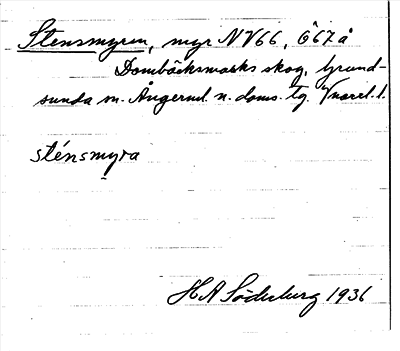 Stensmyren, myr NV66, Ö67å
Dombäcksmarks skog, Grund-
sunda sn. Ångerml. n. doms. tg V/norrl. l.
sténsmyra
H A Söderberg 1936